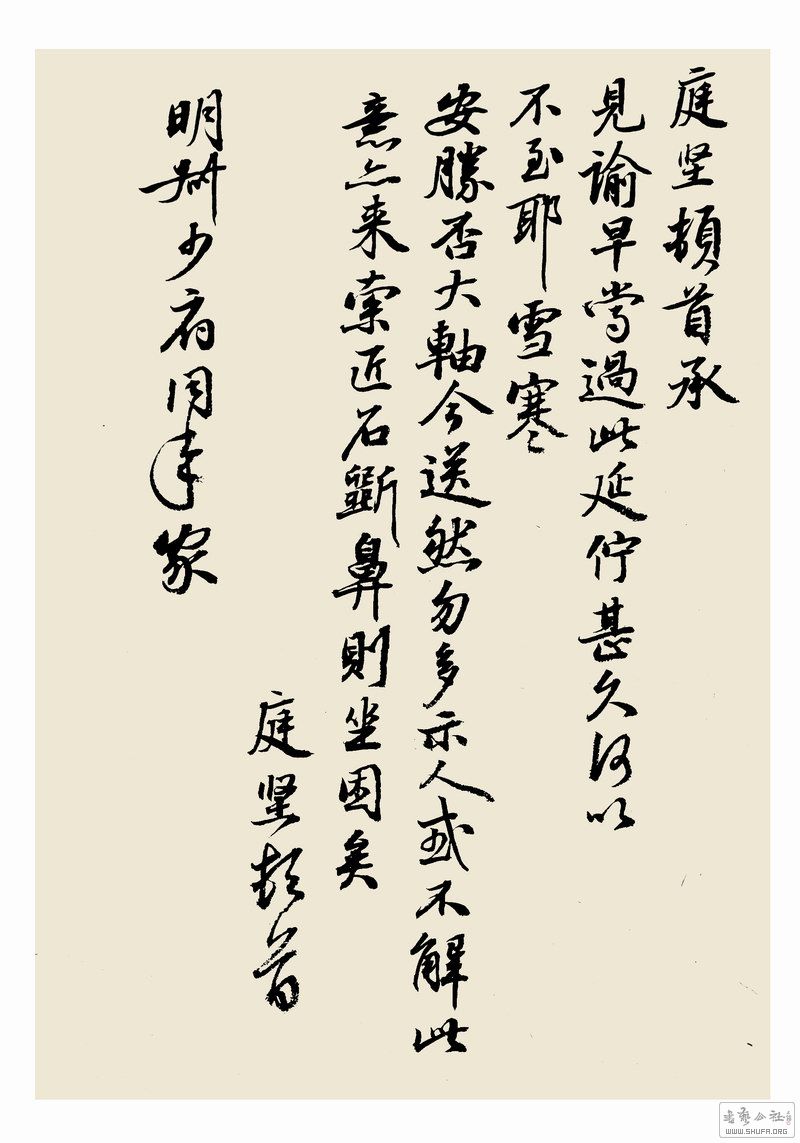 庭坚頓首承
見諭早當過此延佇甚久何以
不至耶雪寒
安勝否大軸今送然勿多示人或不解此
意亦来索匠石斲鼻則坐困矣
庭坚頓首
明叔少府同年家
書藝公社
WWW.SHUFA.ORG